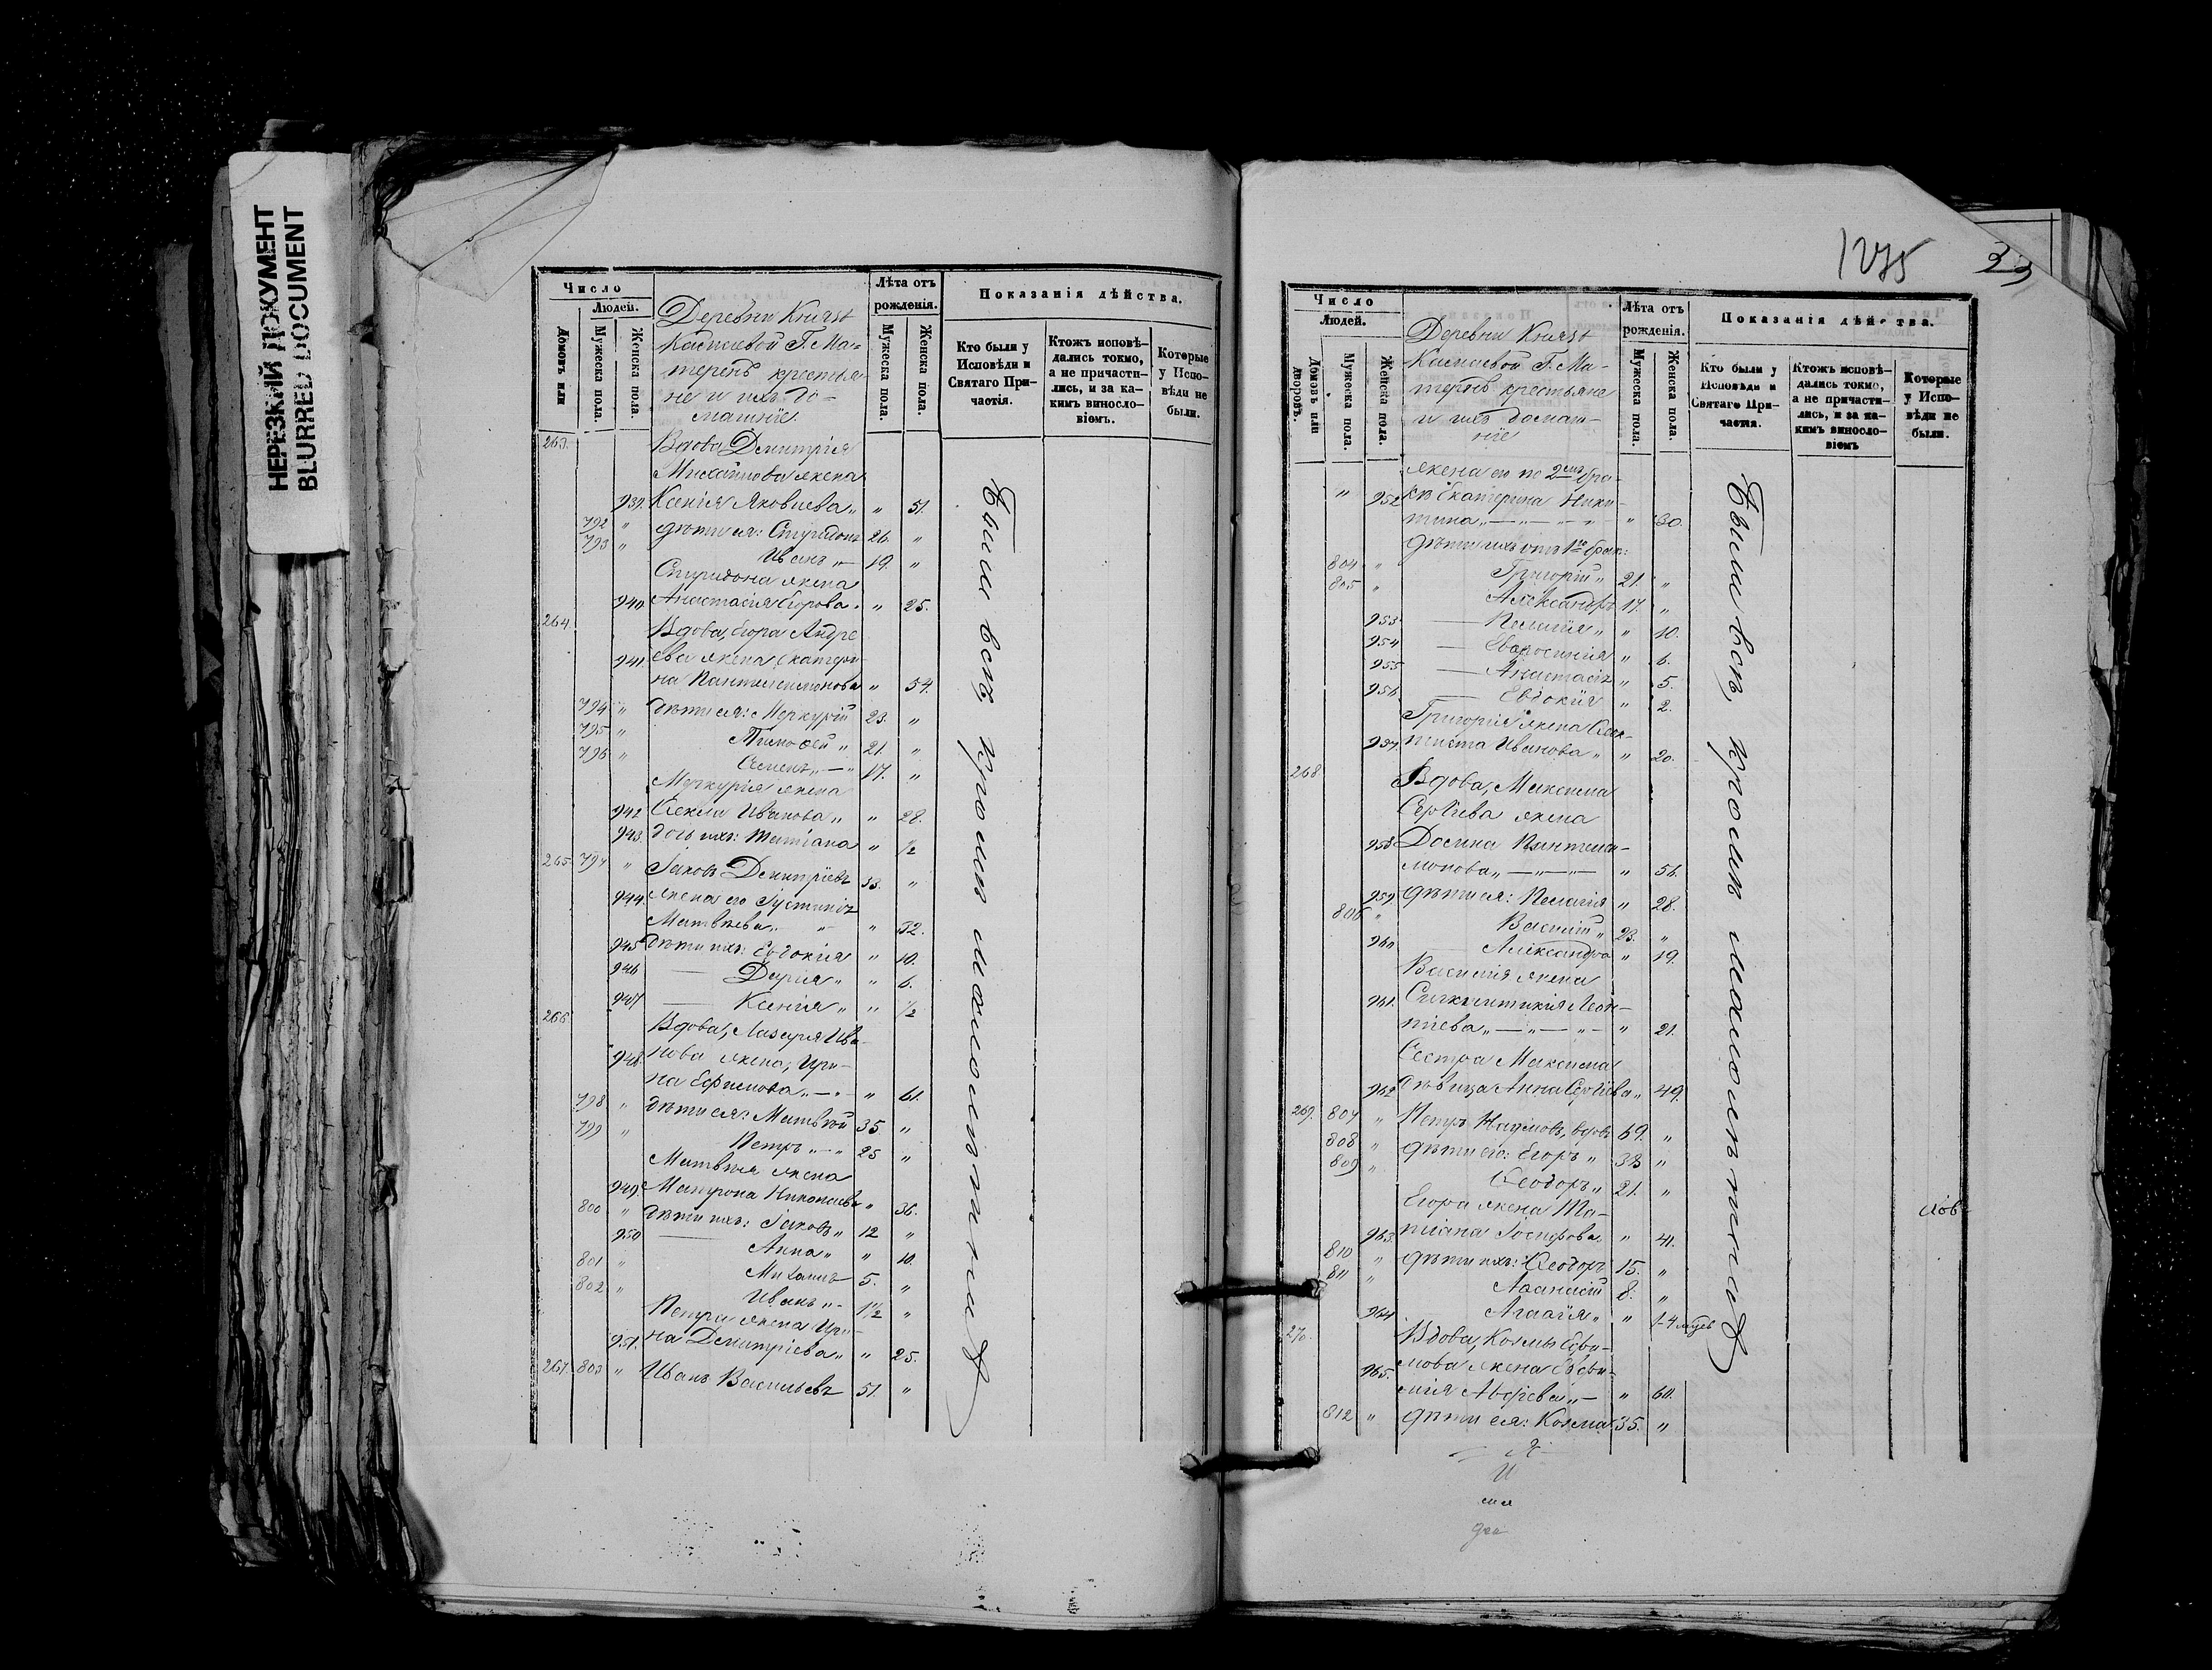 НЕРЕЗКИЙ ДОКУМЕНТ
BLURRED DOCUMENT
Число
Людей.
Домовъ или
Мужеска пола.
Женска пола.
Деревни Князь
Касплевой Г. Ма-
теренъ крестья-
не и ихъ до-
машніе.
Лѣта отъ
рожденія.
Мужеска пола.
Женска пола.
Показанія дѣйства.
Кто были у
Исповѣди и
Святаго При-
частія.
Ктожъ исповѣ-
дались токмо,
а не причасти-
лись, и за ка-
кимъ винословіемъ.
Которые
у Испо-
вѣди не
были.
263. Вдова Димитрія
Михайлова жена
939. Ксенія Яковлева " " 51.
792 " дѣти ея: Спиридонъ 26. "
793 " Иванъ " 19. "
Спиридона жена
940. Анастасія Егорова " " 25.
264. Вдова, Егора Андре
941. ева жена Екатери-
на Пантелеимонова " 54.
794 " дѣти ея: Меркурій 23. "
795 " Тимофей " 21. "
796 " Семенъ " — " 17. "
Меркурія жена
942 Ѳекла Иванова " " 28.
943. дочь ихъ: Татіана " ½
265. 797 " Іаковъ Димитріевъ 33. "
944. жена его Іустинія
Матвѣева " " " 32.
945 дѣти ихъ: Евдокія " 10.
946 — Дарія " " 6.
947 — Ксенія " " ½
266. Вдова, Лазаря Ива-
948. нова жена, Ири-
на Ефимова " — " " 61.
798 " дѣти ея: Матвѣй 35 "
799 " Петръ " — " 25 "
Матвѣя жена
949. Матрона Николаева " 36.
800 " дѣти ихъ: Іаковъ " 12 "
950 — Анна " " 10.
801 " Михаилъ 5. "
802 " Иванъ " - 1½ "
Петра жена Ири-
951. на Димитріева " " 25.
267. 803 " Иванъ Васильевъ 51. "
Были всѣ, кромѣ малолѣтнихъ
1275
33
Число
Людей.
Домовъ или
дворовъ.
Мужеска пола.
Женска пола.
Деревни Князь
Касплевой Г. Ма-
теренъ крестьяне
и ихъ домаш-
ніе
Лѣта отъ
рожденія.
Мужеска пола.
Женска пола.
Показанія дѣйства.
Кто были у
Исповѣди и
Святаго При-
частія.
Ктожъ исповѣ-
дались токмо,
а не причасти-
лись, и за ка-
кимъ винословіемъ
Которые
у Испо-
вѣди не
были.
жена его по 2му бра-
" 952 кѣ Екатерина Ники-
тина " — " — " - " " 30.
дѣти ихъ отъ 1го брак:
804 " Григорій " 21. "
805 " Александръ 17. "
953 — Пелагія " " 10.
954 — Евфросинія " 6.
955 — Анастасія " 5.
956 — Евдокія " 2.
Григорія жена
957. Иванова " " 20.
268 Вдова, Максима
Сергіева жена
958 Домна Пантелеи-
монова " — " — " — " 56.
959 дѣти ея: Пелагія " 28.
806 " Василій " 23. "
960 — Александра " 19.
Василія жена
961. Синклитикія Леон-
тіева " — " — " - " 21.
Сестра Максима
962 дѣвица Анна Сергіева " 49.
269. 807 " Петръ Наумовъ, вдовъ 69. "
808 " дѣти его: Егоръ " 38 "
809 " Ѳеодоръ " 21. "
Егора жена Та-
963. тіана Іосифова " " 41.
810 " дѣти ихъ: Ѳеодоръ 15. "
811 " Аѳанасій 8. "
964 Агафія " "
270. Вдова, Козмы Ефи-
965. мова жена Евфи-
мія " — " 60.
812 " дѣти ея: Козма 35. "
Были всѣ, кромѣ малолѣтнихъ